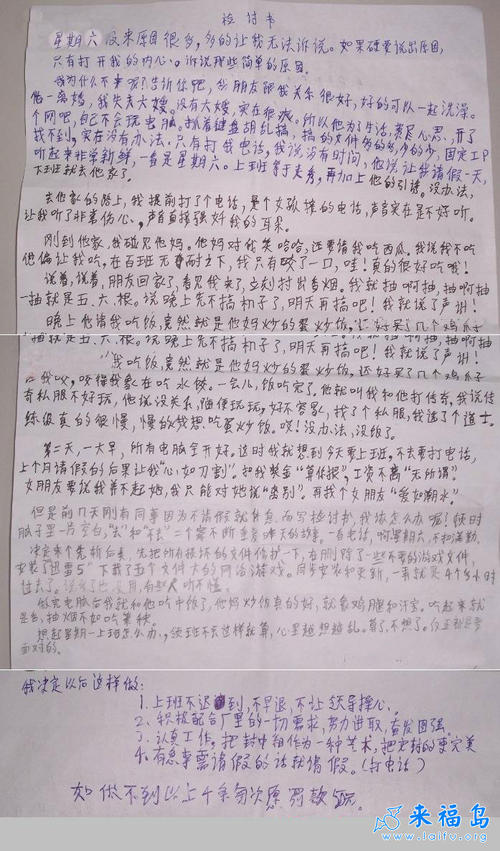 检讨书
星期六没来原因很多,多的让我无法诉说。如果硬要说出原因,
只有打开我的内心。诉说那些简单的原因。
我为什么不来呢?告诉你吧,我朋友跟我关系很好,好的可以一起洗澡。
他一离婚,我失去大嫂。没有大嫂,实在很惨。所以他为了生活,费尽心思,开了
个网吧,自己不会玩电脑。抓着键盘胡乱搞,搞的文件多的多,少的少,固定IP
找不到,实在没有办法。只有打我电话,我说没有时间,他说让我请假一天,
听起来非常新鲜,一看是星期六。上班等于卖秀,再加上他的引诱,没办法,
下班就去他家了。
去他家的路上,我提前打了个电话,是个女孩接的电话,声音实在是不好听。
让我听了非常伤心,声音直接强奸我的耳朵。
刚到他家,我碰见他妈。他妈对我笑哈哈,还要请我吃西瓜。我说我不吃
他偏让我吃,在百般无奈之下,我只有咬了一口,哇!真的很好吃哦!
说着,说着,朋友回家了,看见我来了,立刻打出香烟。我就抽啊抽,抽啊抽
一抽就是五、六根。说晚上先不搞机子了,明天再搞吧!我就说了声谢!
晚上他请我吃饭,竟然就是他妈炒的蛋炒饭,还好买了几个鸡爪子
一抽就是五、六根。说晚上先不搞机子了,明天再搞吧!我就说了声谢!
我吃饭,竟然就是他妈炒的蛋炒饭,还好买了几个鸡爪子
给我哎,哎得我象在吃水饺。一会儿,饭吃完了。他就叫我和他打传奇,我说传
奇私服不好玩,他说没关系,随便玩玩,好不容易,找了个私服,我选了个道士。
练级真的很慢,慢的我想吃蛋炒饭。哎!没办法,没饭了。
第二天,一大早,所有电脑全开好。这时我就想到今天要上班。不去要打电话,
上个月请假的后果让我“心如刀割”。扣我奖金“算你狠”,工资不高“无所谓”
女朋友要说我养不起她,我只能对她说“告别”。再找个女朋友“爱如潮水”
但是前几天刚有同事因为不请假就休息而写检讨书,我该怎么办呢!顿时
脑子里一片空白,“去”和“不去”二个
决定来个先斩后奏,先把所有损坏的文件修护一下,在删除了一些不要的游戏文件,
安装了迅雷5下载了五个文件大的网络游戏。同步安装和更新,一弄就是4个多小时
过去了。
做完电脑后我就和他吃中饭了,他妈炒饭真的好,就象鸡腿和汗宝。吃起来就
是香,抽烟不如吃辣椒。
想起星期一上班怎么办,领班不会这样就算,心里越想越乱。算了,不想了。
面对的。
我决定以后这样做:
1.上班不迟到,不早退,不让领导操心。
2.积极配合厂里的一切需求,努力进取,奋发图强。
3.认真工作,把封箱作为一种艺术,把它封的更完美
4.有急事需请假的话我请假。(打电话)
如做不到以上4条每次愿罚款5元。
来福岛
www.laifu.org